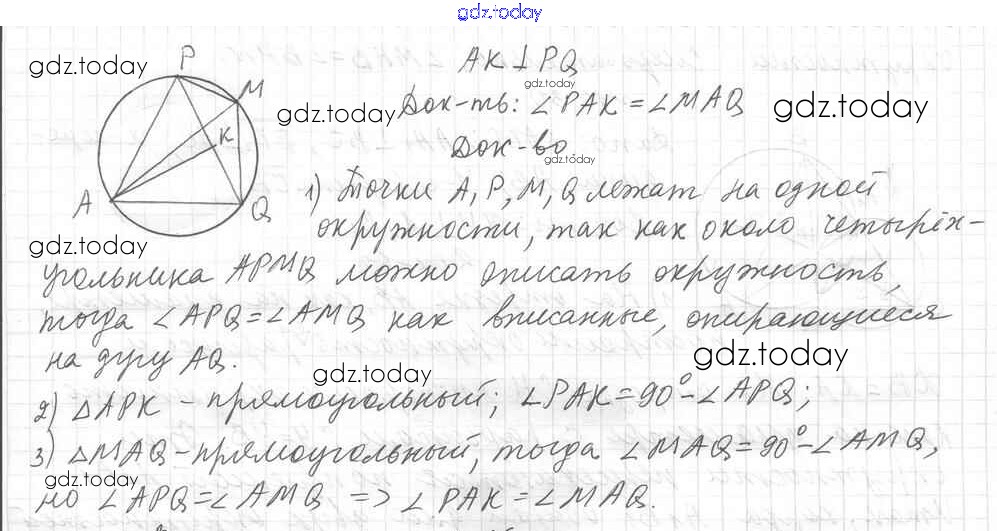 gdz.today
AK ⊥ PQ
gdz.today
Док-ть: ∠PAK = ∠MAQ
Док-во
gdz.today
gdz.today
gdz.today
gdz.today
P
M
K
A
Q
1) Точки A, P, M, Q лежат на одной
окружности, так как около четырёх-
gdz.today
угольника APMQ можно описать окружность,
тогда ∠APQ = ∠AMQ как вписанные, опирающиеся
на дугу AQ.
gdz.today
gdz.today
2) △APK - прямоугольный; ∠PAK = 90° - ∠APQ;
3) △MAQ - прямоугольный, тогда ∠MAQ = 90° - ∠AMQ,
gdz.today
но ∠APQ = ∠AMQ => ∠PAK = ∠MAQ.